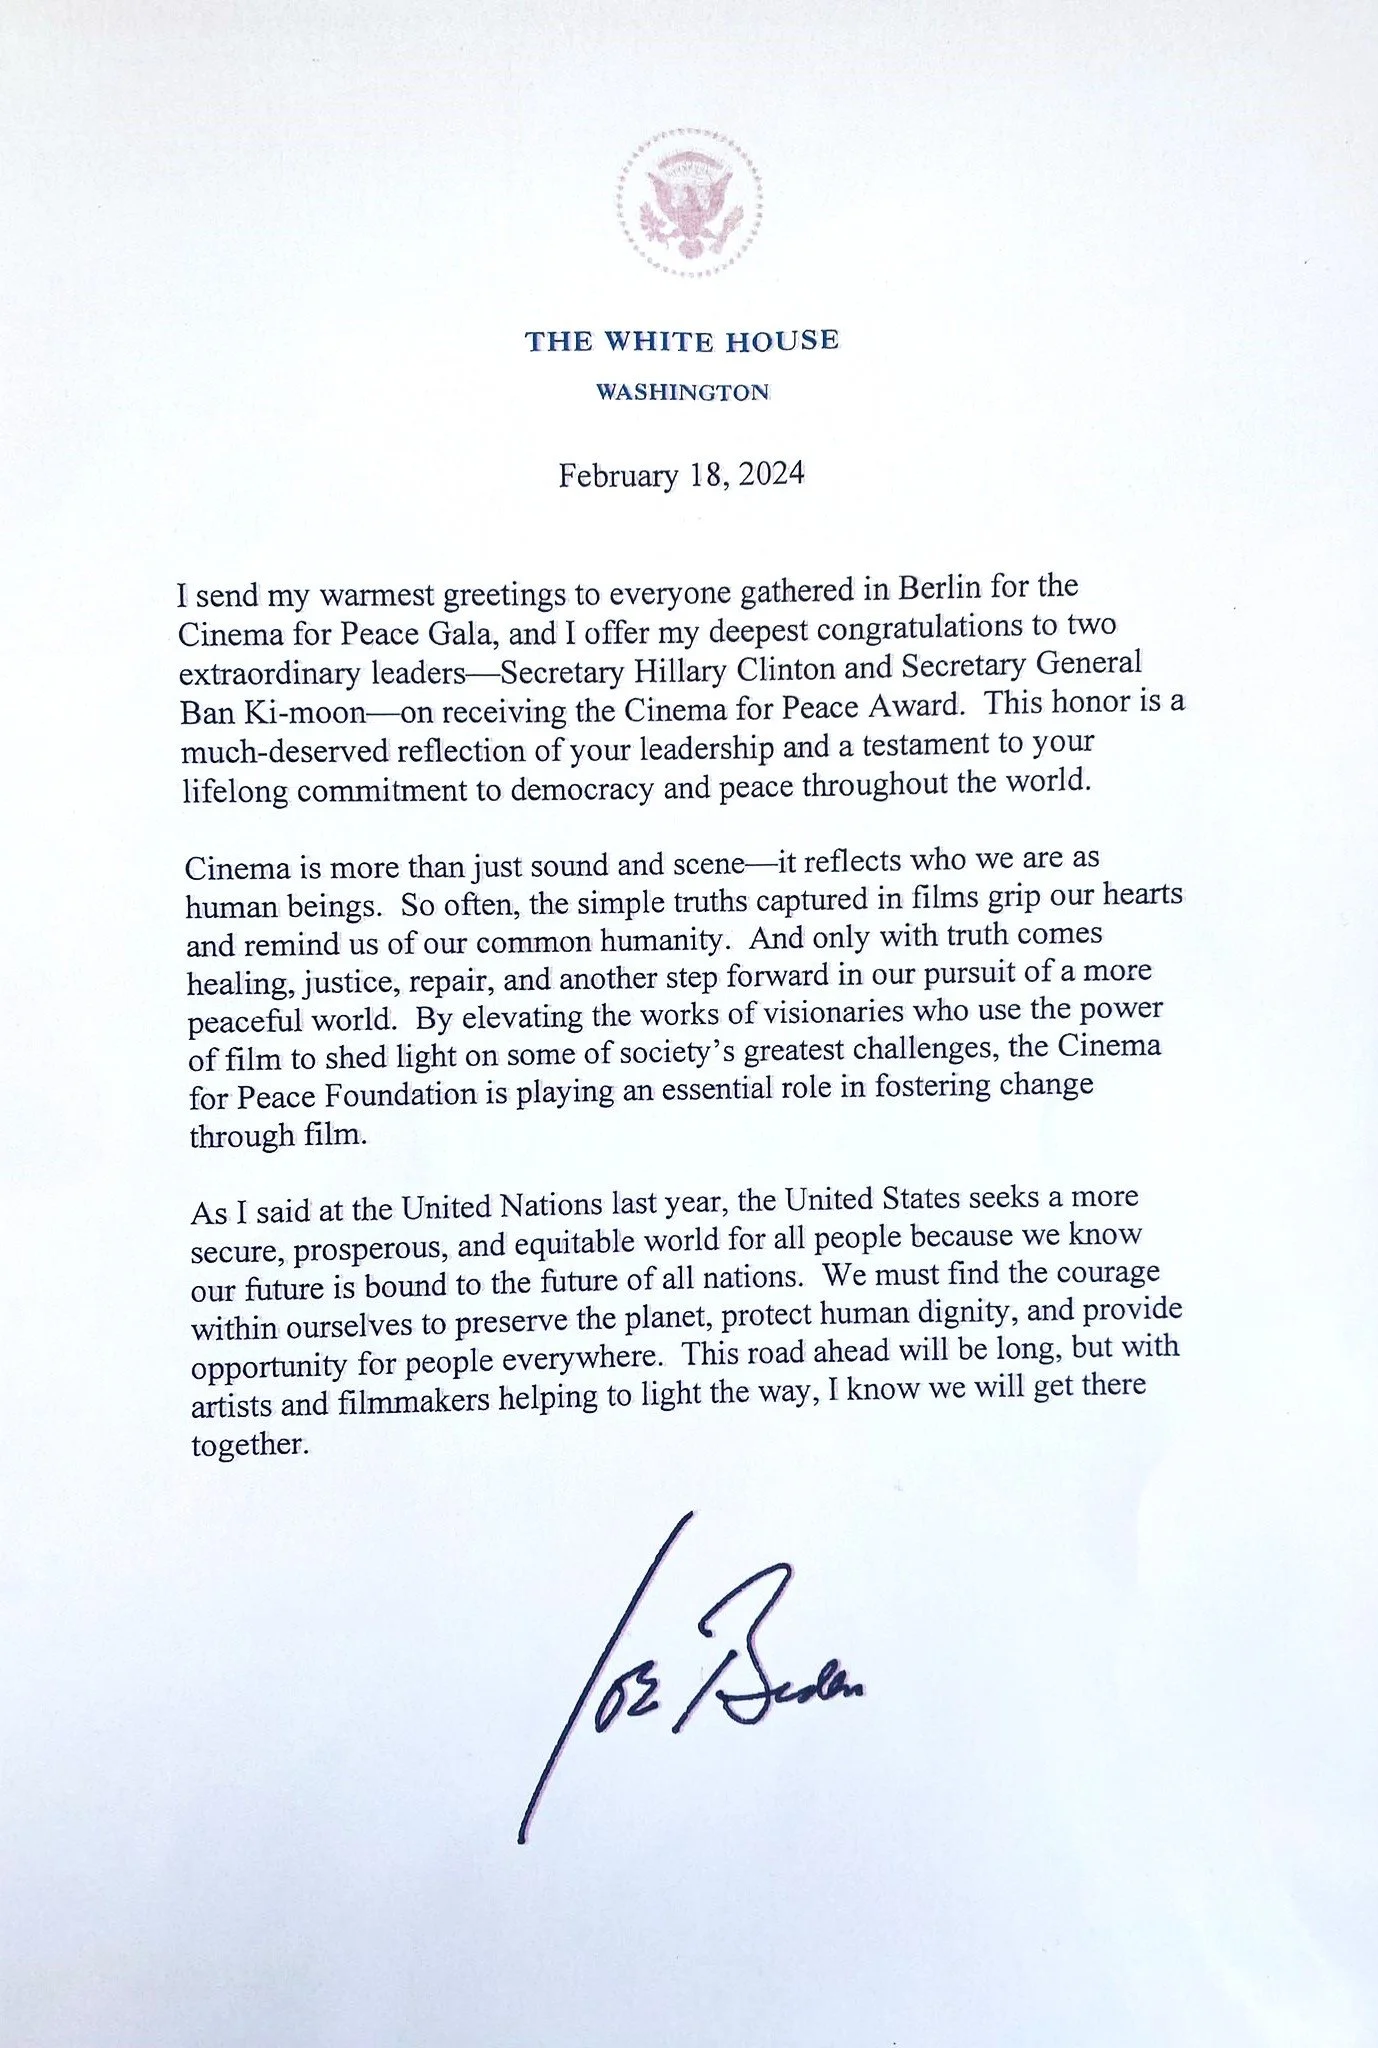 THE WHITE HOUSE
WASHINGTON
February 18, 2024
I send my warmest greetings to everyone gathered in Berlin for the
Cinema for Peace Gala, and I offer my deepest congratulations to two
extraordinary leaders—Secretary Hillary Clinton and Secretary General
Ban Ki-moon—on receiving the Cinema for Peace Award.  This honor is a
much-deserved reflection of your leadership and a testament to your
lifelong commitment to democracy and peace throughout the world.
Cinema is more than just sound and scene—it reflects who we are as
human beings.  So often, the simple truths captured in films grip our hearts
and remind us of our common humanity.  And only with truth comes
healing, justice, repair, and another step forward in our pursuit of a more
peaceful world.  By elevating the works of visionaries who use the power
of film to shed light on some of society’s greatest challenges, the Cinema
for Peace Foundation is playing an essential role in fostering change
through film.
As I said at the United Nations last year, the United States seeks a more
secure, prosperous, and equitable world for all people because we know
our future is bound to the future of all nations.  We must find the courage
within ourselves to preserve the planet, protect human dignity, and provide
opportunity for people everywhere.  This road ahead will be long, but with
artists and filmmakers helping to light the way, I know we will get there
together.
Joe Biden